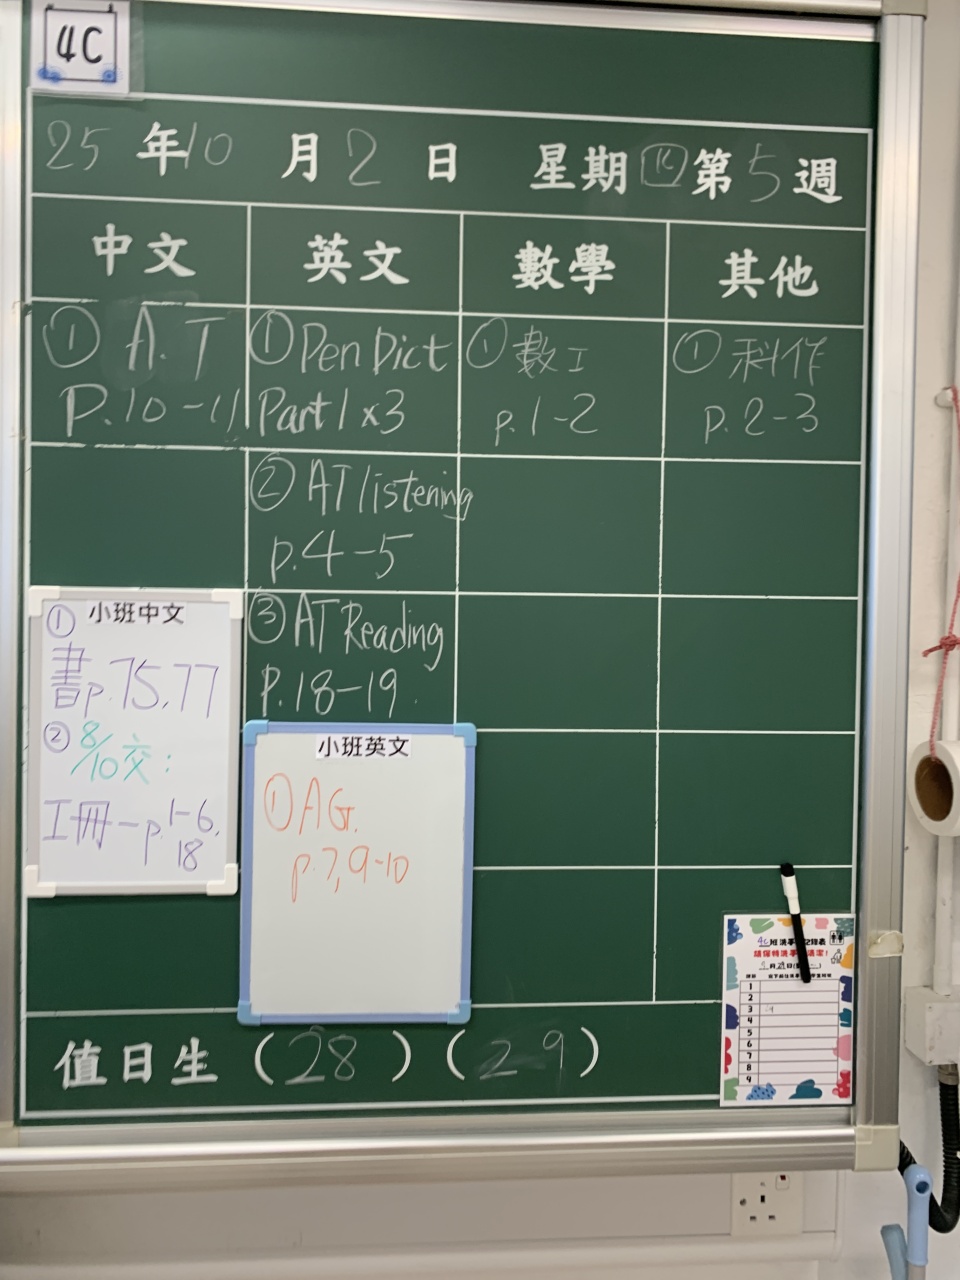 4C
25 年 10 月 2 日 星期 四 第 5 週
中文 英文 數學 其他
① A.T
P.10-11
① Pen Dict
Part 1 x3
② AT listening
p.4-5
③ AT Reading
P.18-19
① 數工
p.1-2
① 科作
p.2-3
小班中文
①
書p.75,77
② 8/10交:
工冊-p.1-6,
18
小班英文
① AG.
p.7,9-10
值日生 (28) (29)
4C班洗手
記錄表
1
2
3
4
5
6
7
8
9